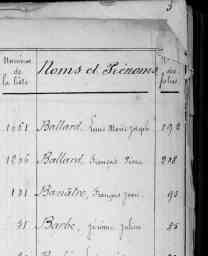 3
Numéros de la liste Noms et Prénoms Nos des folios
1651 Ballard, Louis Marie Joseph 192
1256 Ballard, François Pierre 218
131 Banâtre, François Jean 95
31 Barbe, Jérôme Julien 85